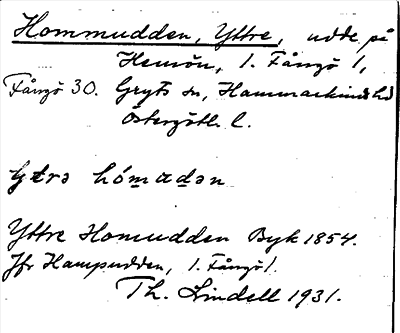 Hommudden, Yttre, udde på
Hemön, 1. Fångö 1,
Fångö 30. Gryts sn, Hammarkinds hd
Östergötl. l.
ytrə hómadən
Yttre Homudden Byk 1854.
Jfr Hampudden, 1. Fångö 1.
Th. Lindell 1931.